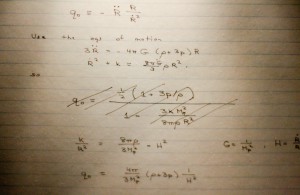 q₀ = - R̈ R / Ṙ²
Use the eqs of motion
3R̈ = - 4π G (ρ+3p) R
Ṙ² + k = 8πG/3 ρR²
so
q₀ = ½ (1 + 3p/ρ) / 1 - 3kM²ₚ/8πρR²
k/R² = 8πρ/3M²ₚ - H² G = 1/M²ₚ , H =
q₀ = 4π/3M²ₚ (ρ+3p) 1/H²